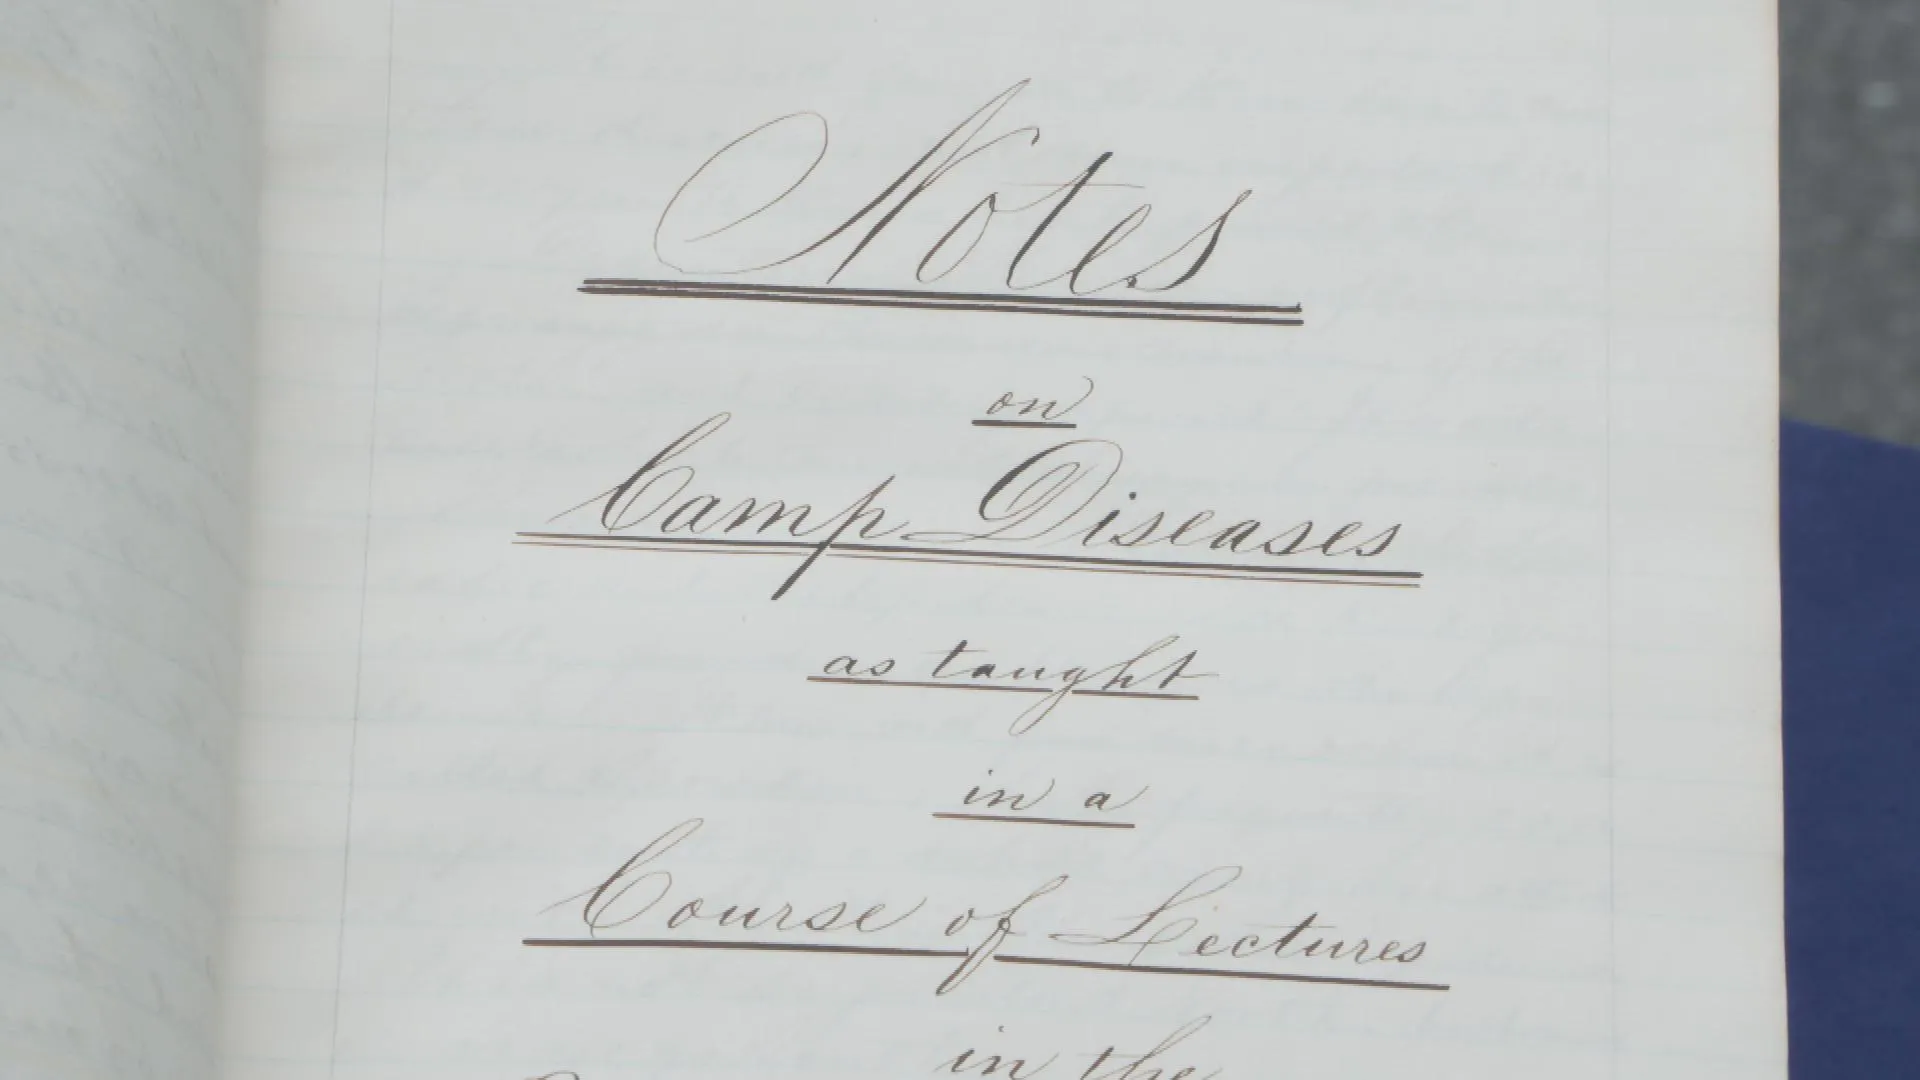 Notes
on
Camp Diseases
as taught
in a
Course of Lectures
in the